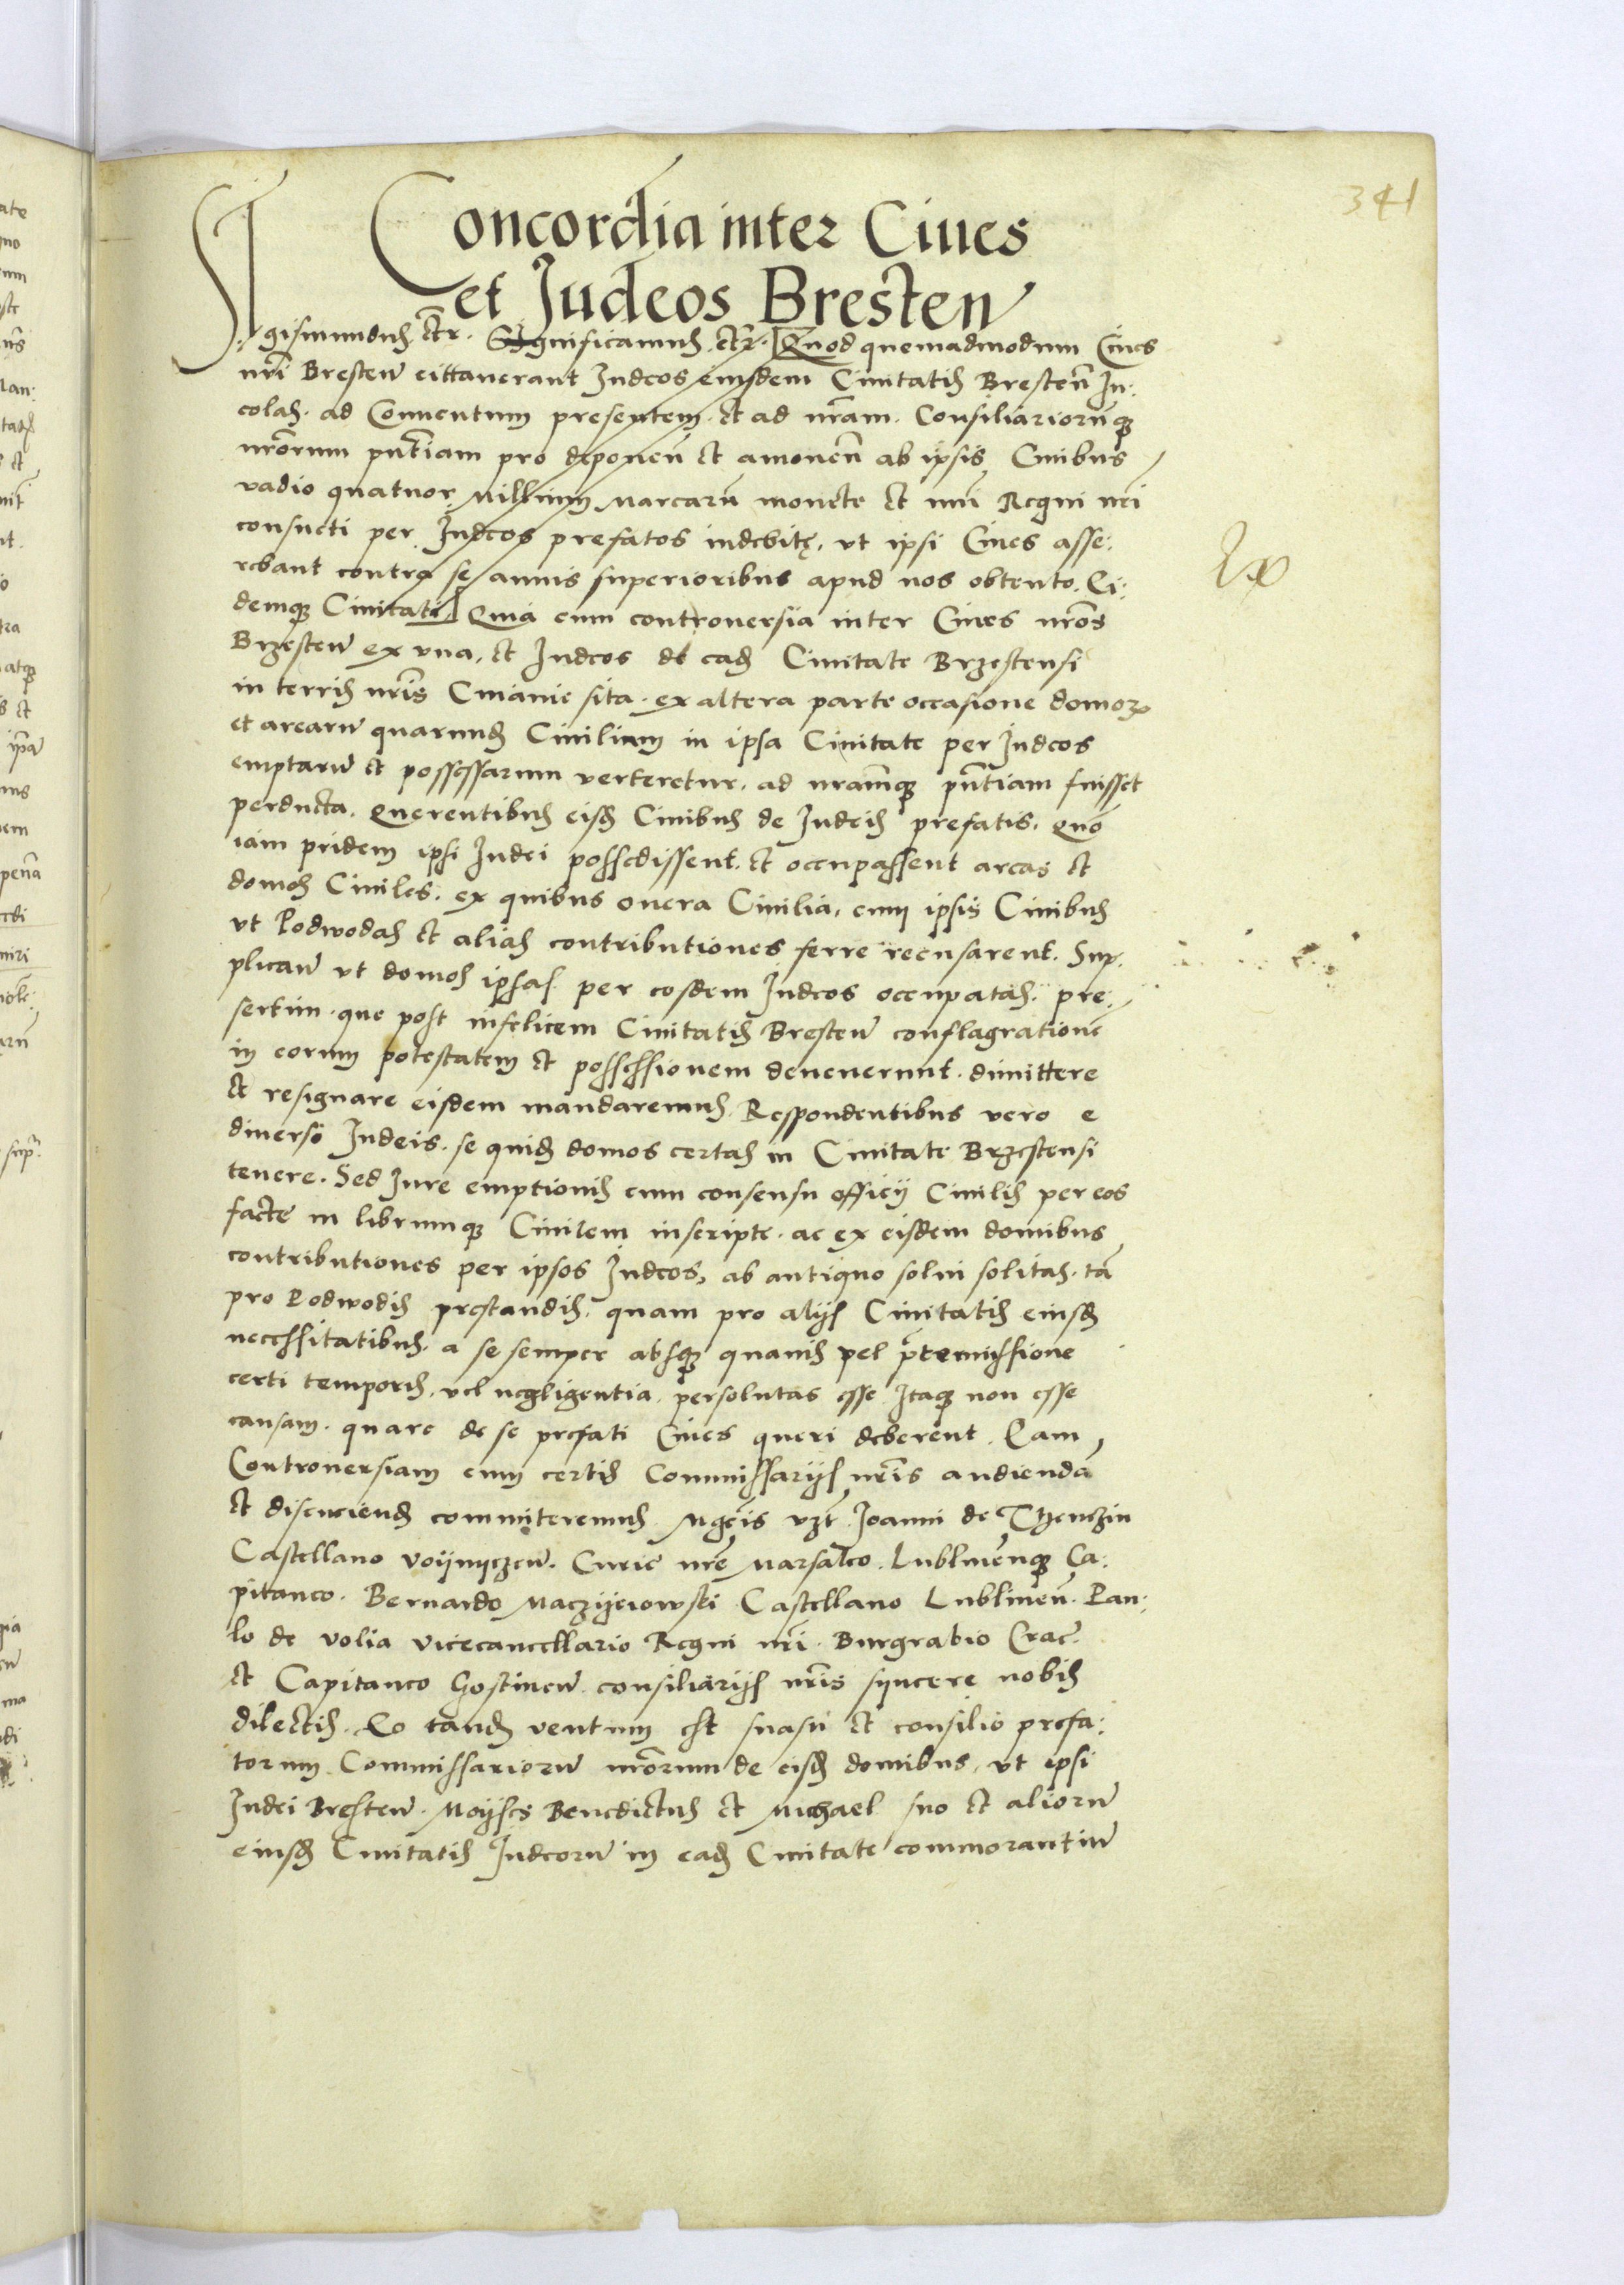 341
Concordia inter Ciues
et Judeos Bresten
Sigismundus etr. Significamus etr. Quod quemadmodum Ciues
nri Bresten cittauerant Judeos eiusdem Ciuitatis Bresten In:
colas. ad Conuentum presentem et ad nram. Consiliariorūq
nrorum pntiam pro deponen et amouen ab ipsis Ciuibus
vadio quatuor Millium Marcarū monete et nūi Regni nri
consueti per Judeos prefatos indebitę, vt ipsi Ciues asse:
rebant contra se annis superioribus apud nos obtento. Ei:
demq Ciuitati Quia cum controuersia inter Ciues nros
Brzesten ex vna, et Judeos de ead Ciuitate Brzestensi
in terris nris Cuiauie sita. ex altera parte occasione domoꝝ
et arearū quarund Ciuilium in ipsa Ciuitate per Judeos
emptarū et possessarum verteretur, ad nramq pntiam fuisset
perducta. Querentibus eisd Ciuibus de Judeis prefatis, Quō
iam pridem ipsi Judei possedissent et occupassent areas et
domos Ciuiles, ex quibus onera Ciuilia, cum ipsis Ciuibus
vt Podwodas et alias contributiones ferre recusarent. Sup:
plican vt domos ipsas per eosdem Judeos occupatas. pre:
sertim que post infelicem Ciuitatis Bresten conflagrationē
in eorum potestatem et possessionem deuenerunt. dimittere
et resignare eisdem mandaremus. Respondentibus vero e
diuerso Judeis. se quid domos certas in Ciuitate Brzestensi
tenere. Sed Jure emptionis cum consensu officij Ciuilis per eos
facte in librumq Ciuilem inscripte. ac ex eisdem domibus
contributiones per ipsos Judeos, ab antiquo solui solitas. tā
pro Podwodis prestandis. quam pro alijs Ciuitatis eiusd
necessitatibus. a se semper absq quauis vel pretermissione
certi temporis, vel negligentia. persolutas esse Itaq non esse
causam. quare de se prefati Ciues queri deberent. Eam
Controuersiam cum certis Commissarijs nris audiendā
et discuciend committeremus. Mgcis vzt Joanni de Thenczin
Castellano Voijnijczen. Curie nre Marsalco. Lublinenq Ca:
pitaneo. Bernardo Maczijeiowski Castellano Lublinen. Pau:
lo de Volia Vicecancellario Regni nri. Burgrabio Crac
et Capitaneo Gostinen. consiliarijs nris syncere nobis
dilectis. Eo tand ventum est suasu et consilio prefa:
torum Commissariorū nrorum de eisd domibus, vt ipsi
Judei Bresten. Moijses Benedictus et Michael suo et aliorū
eiusd Ciuitatis Judeorū in ead Ciuitate commorantiū